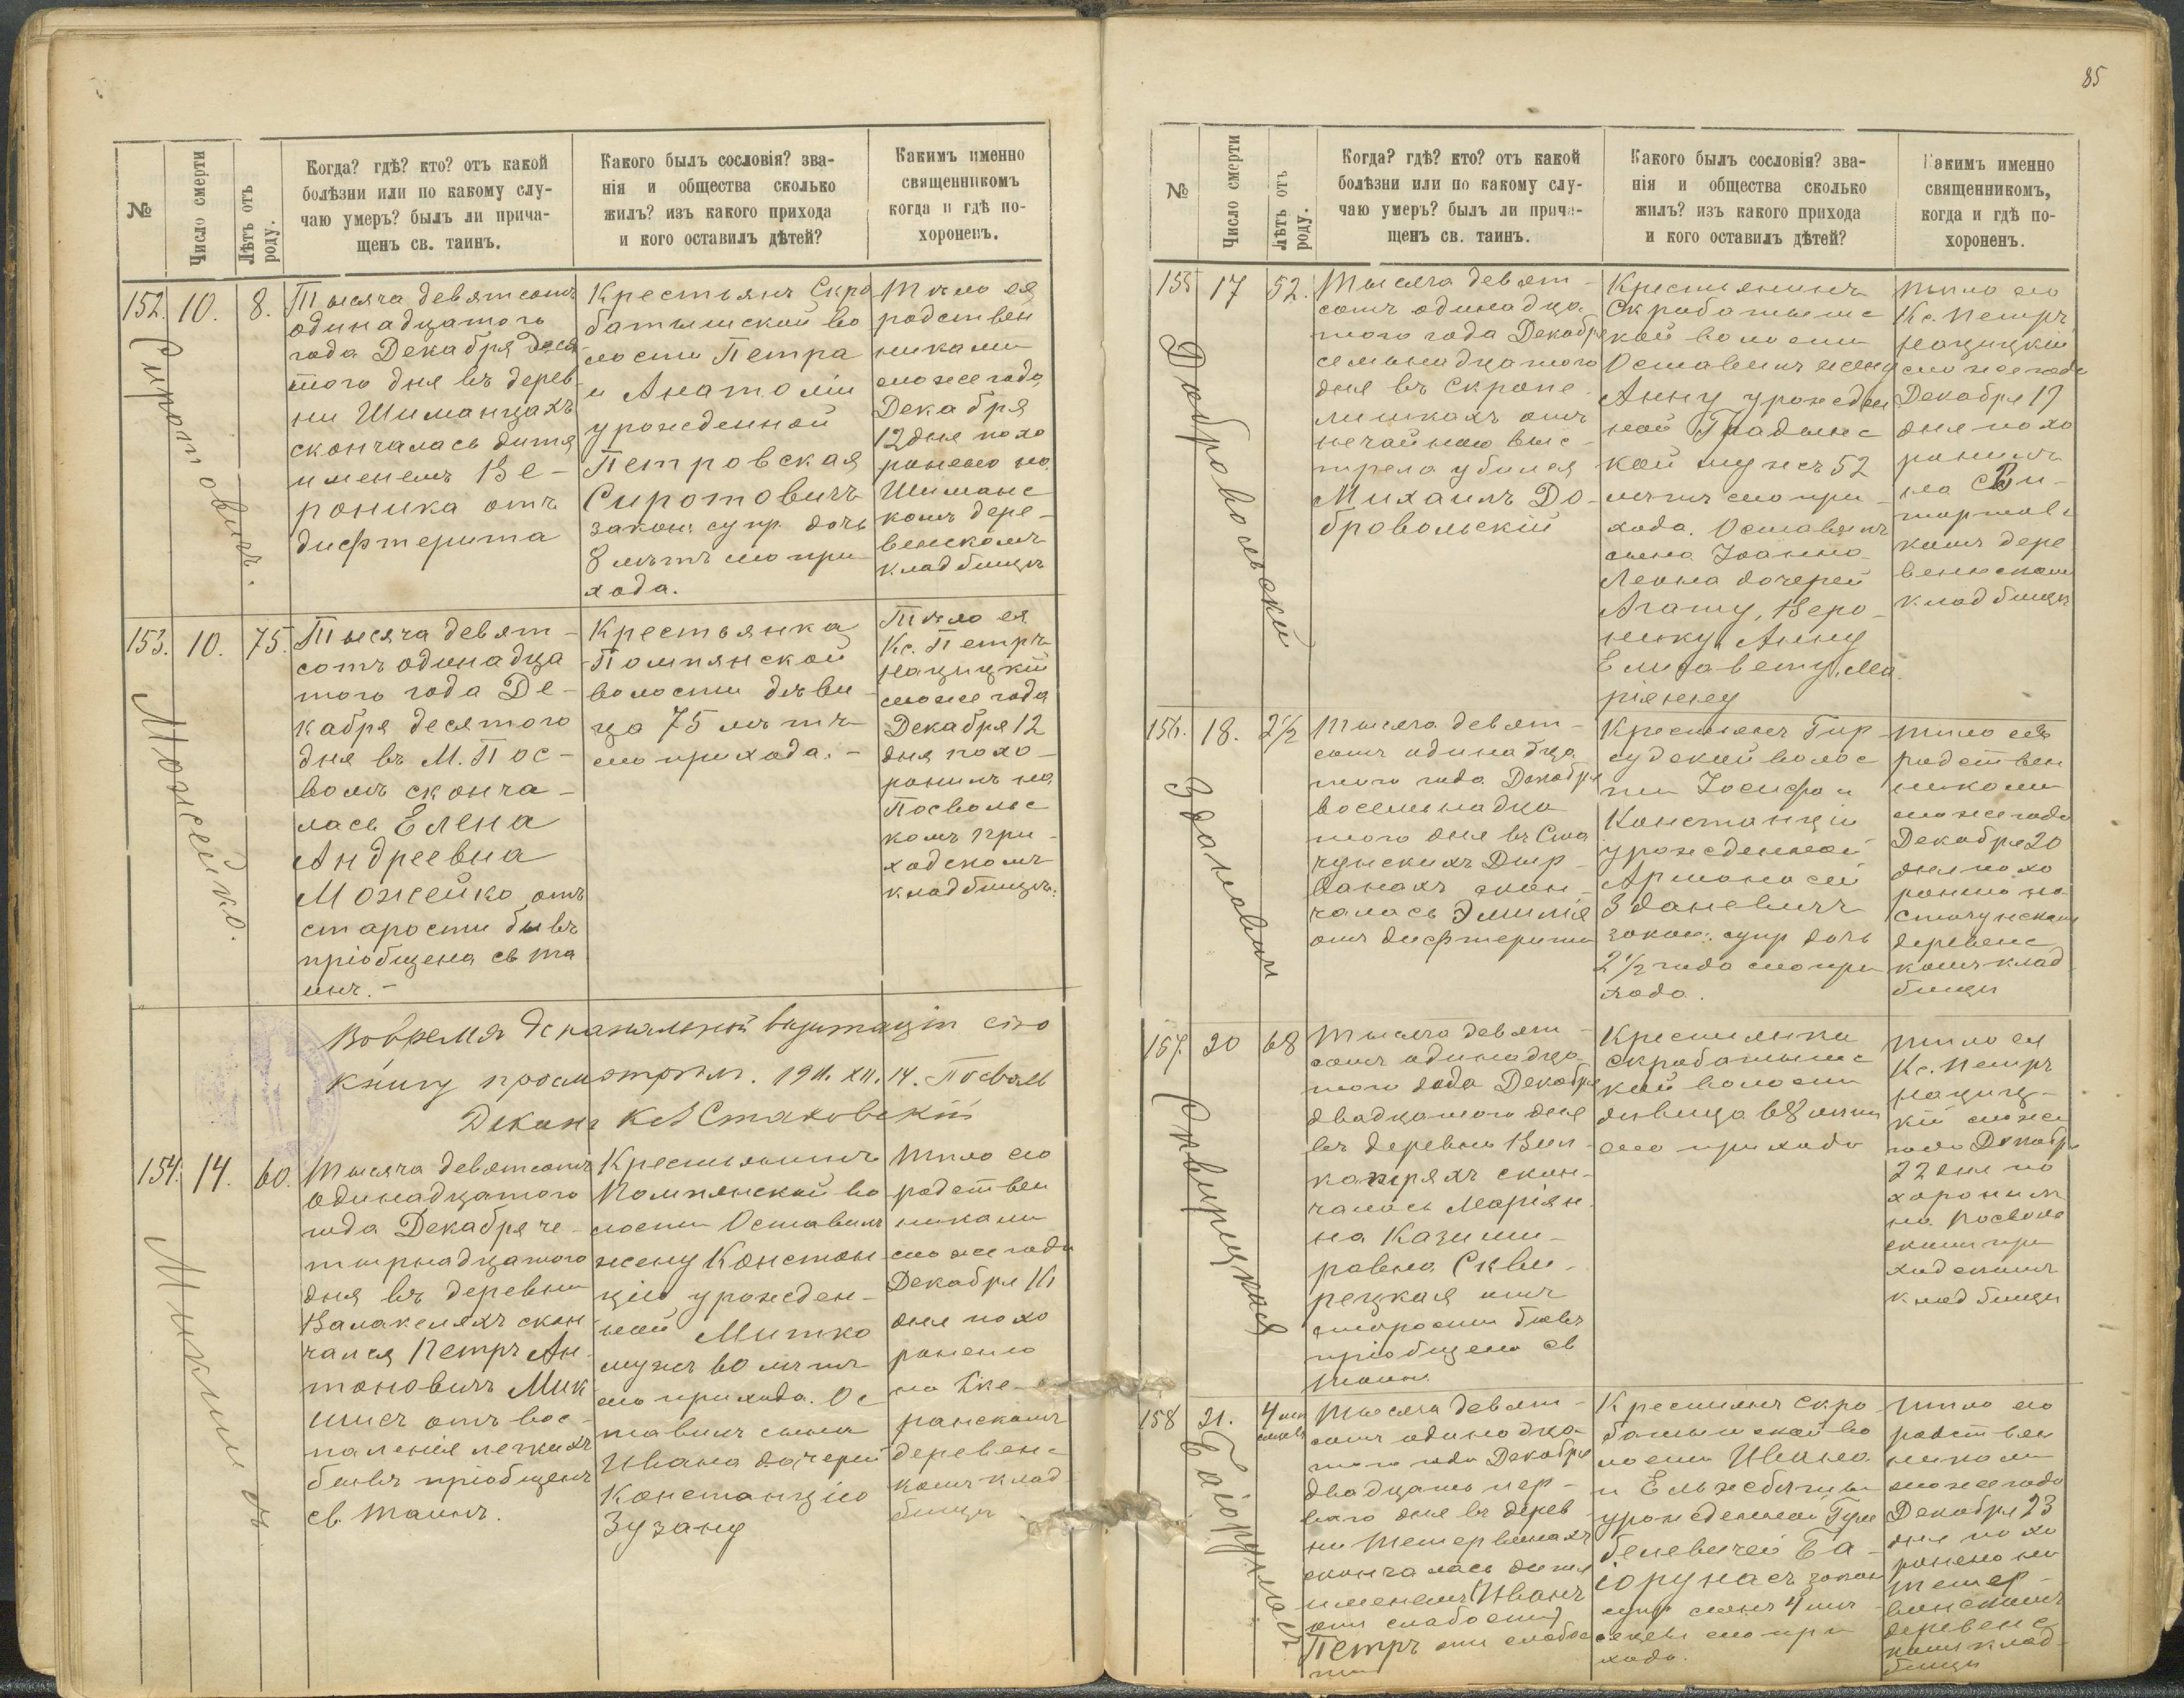 85
№
Число смерти
Лѣтъ отъ роду.
Когда? гдѣ? кто? отъ какой
болѣзни или по какому слу-
чаю умеръ? былъ ли прича-
щенъ св. таинъ.
Какого былъ сословія? зва-
нія и общества сколько
жилъ? изъ какого прихода
и кого оставилъ дѣтей?
Какимъ именно
священникомъ
когда и гдѣ по-
хороненъ.
152. 10. 8.
Сиротовичъ.
Тысяча девятсотъ
одинадцатого
года Декабря деся
того дня въ дерев
ни Шиманцахъ
скончалась дитя
именемъ Ве-
роника отъ
дифтерита
Крестьянъ Скро
батышской во
лости Петра
и Анатоліи
урожденной
Петровская
Сиротовичъ
закон. супр. дочь
8 лѣтъ сто при
хода.
Тѣло ея
родствен
никами
сто же года
Декабря
12 дня похо
ронено на
Шиманс
комъ дере-
венскомъ
кладбищѣ
153. 10. 75.
Можейко.
Тысяча девят-
сотъ одинадца
того года Де-
кабря десятого
дня въ М. Пос-
волъ сконча-
лась Елена
Андреевна
Можейко отъ
старости бывъ
пріобщена св та
инъ.-
Крестьянка
Помпянской
волости дѣви
ца 75 лѣтъ
сто прихода.-
Тѣло ея
Кс. Петръ
Нацицкій
сто же года
Декабря 12
дня похо-
ронилъ на
Посвольс
комъ при-
ходскомъ
кладбищѣ.
Вовремя деканальной визитаціи сію
книгу просмотрѣлъ. 1911. XII. 14. Посволь
Деканъ Стаховскій
154. 14. 60.
Микшисъ
Тысяча девятсотъ
одинадцатого
года Декабря че-
тырнадцатого
дня въ деревни
Валакеляхъ скон
чался Петръ Ан
тоновичъ Мик
шисъ отъ вос-
паленія легкихъ
бывъ пріобщенъ
св. таинъ.
Крестьянинъ
Помпянской во
лости Оставилъ
жену Констан
цію урожден-
ной Митко
мужъ 60 лѣтъ
сто прихода. Ос
тавилъ сына
Ивана дочерей
Констанцію
Зузану
Тѣло его
родствен
никами
сто же года
Декабря 16
дня похо
ронено
на
ранскомъ
деревенс
комъ клад
бищѣ
№
Число смерти
Лѣтъ отъ роду.
Когда? гдѣ? кто? отъ какой
болѣзни или по какому слу-
чаю умеръ? былъ ли прича-
щенъ св. таинъ.
Какого былъ сословія? зва-
нія и общества сколько
жилъ? изъ какого прихода
и кого оставилъ дѣтей?
Какимъ именно
священникомъ,
когда и гдѣ по-
хороненъ.
155 17 52.
Добровольскій
Тысяча девят-
сотъ одинадца
того года Декабря
семьнадцатого
дня въ Скропе
лишкахъ отъ
нечайного выс-
трела убился
Михаилъ До-
бровольскій
Крестьянинъ
Скробатышс
кой волости
Оставилъ жену
Анну урожден
ной
кой мужъ 52
лѣтъ сто при-
хода. Оставилъ
сына Іоанна
Леона дочерей
Агату, Веро-
нику, Анну
Елизавету, Ма
ріянну
Тѣло его
Кс. Петръ
Нацицкій
сто же года
Декабря 19
дня похо
ронилъ
на
комъ дере
венскомъ
кладбищѣ
156. 18. 2½
Здановичъ
Тысяча девят-
сотъ одинадца
того года Декабря
восемьнадца
того дня въ Ста
чунскихъ Дир-
ванахъ скон-
чалась Эмилія
отъ дифтерита
Крестьянъ Гир-
судской волос
ти Іосифа и
Констанціи
урожденной
Здановичъ
закон. супр дочь
2½ года сто при
хода.
Тѣло ея
родствен
никами
сто же года
Декабря 20
дня похо
ронено на
Стачунском
деревенс
комъ клад
бищѣ
157. 20 68
Сквирецкая
Тысяча девят-
сотъ одинадца-
того года Декабря
двадцатого дня
въ деревни
скон-
чалась Маріян
на Казими-
ровна Скви-
рецкая отъ
старости бывъ
пріобщена св
таинъ.
Крестьянка
Скробатышс
кой волости
дѣвица 68 лѣтъ
сто прихода
Тѣло ея
Кс. Петръ
Нациц-
кій сто же
года Декабря
22 дня по
хоронилъ
на Посволь
скомъ при
ходскомъ
кладбищѣ
158 21. 4 мѣ
сяцевъ
Баіорунасъ
Тысяча девят-
сотъ одинадца-
того года Декабря
двадцать пер-
ваго дня въ дерев
ни Тетервинахъ
скончалась дитя
именемъ (Иванъ
отъ слабости)
Петръ отъ слабос
ти
Крестьянъ Скро
батышской во
лости Ивана
и Ельжбеты
урожденной
Ба-
іорунасъ закон
супр сынъ 4 мѣ
сяцевъ сто при
хода.
Тѣло его
родствен
никами
сто же года
Декабря 23
дня похо
ронено на
Тетер-
винскомъ
деревенс
комъ клад-
бищѣ